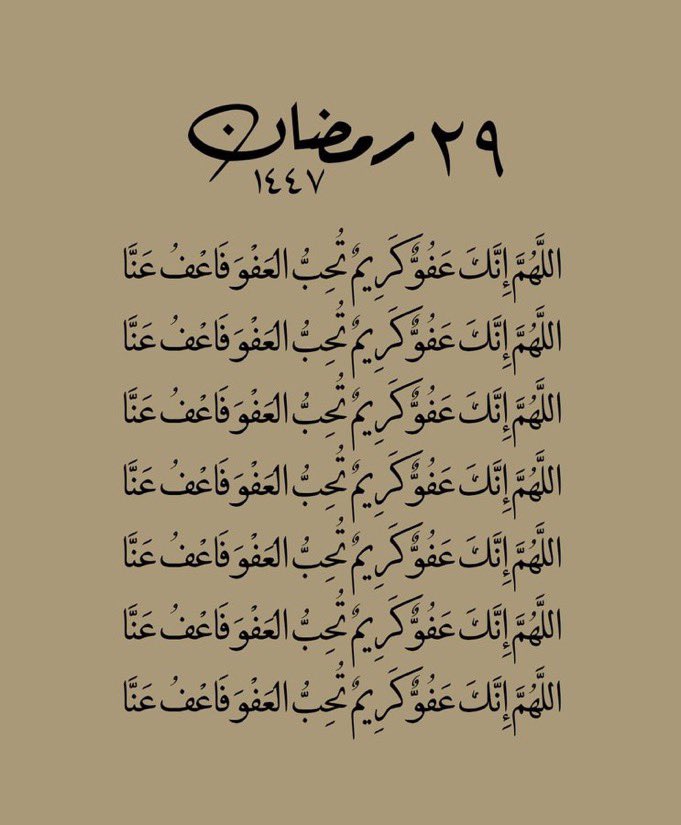 ٢٩ رمضان
١٤٤٧
اللَّهُمَّ إِنَّكَ عَفُوٌّ كَرِيمٌ تُحِبُّ العَفْوَ فَاعْفُ عَنَّا
اللَّهُمَّ إِنَّكَ عَفُوٌّ كَرِيمٌ تُحِبُّ العَفْوَ فَاعْفُ عَنَّا
اللَّهُمَّ إِنَّكَ عَفُوٌّ كَرِيمٌ تُحِبُّ العَفْوَ فَاعْفُ عَنَّا
اللَّهُمَّ إِنَّكَ عَفُوٌّ كَرِيمٌ تُحِبُّ العَفْوَ فَاعْفُ عَنَّا
اللَّهُمَّ إِنَّكَ عَفُوٌّ كَرِيمٌ تُحِبُّ العَفْوَ فَاعْفُ عَنَّا
اللَّهُمَّ إِنَّكَ عَفُوٌّ كَرِيمٌ تُحِبُّ العَفْوَ فَاعْفُ عَنَّا
اللَّهُمَّ إِنَّكَ عَفُوٌّ كَرِيمٌ تُحِبُّ العَفْوَ فَاعْفُ عَنَّا